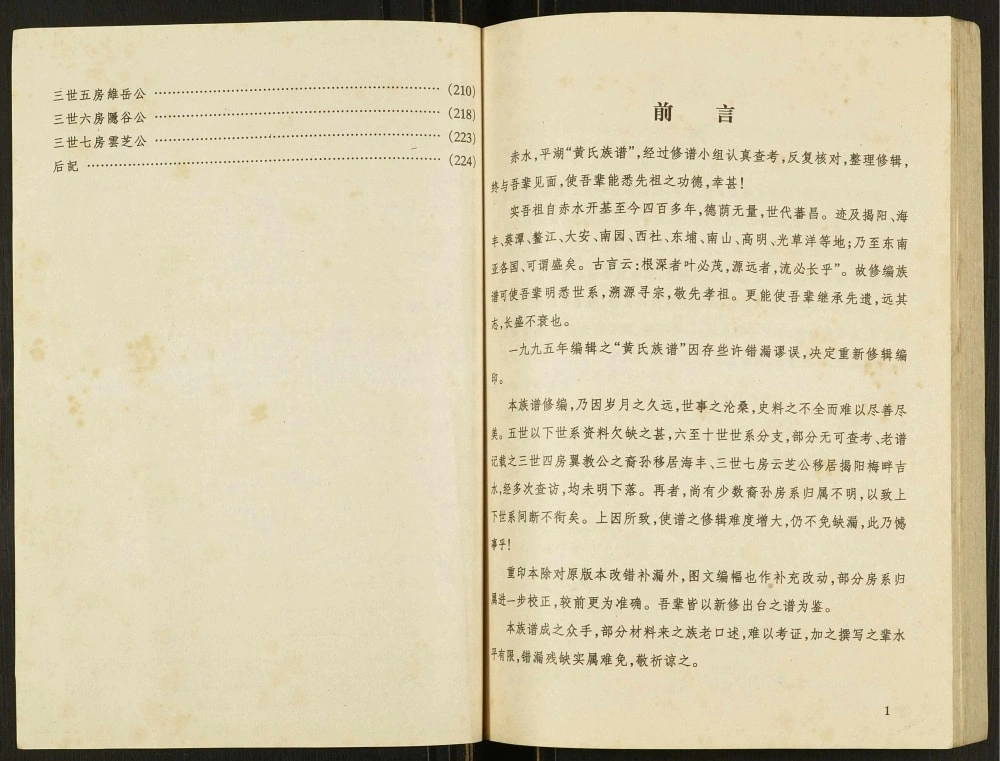 三世五房維岳公 ………………………………………… (210)
三世六房隱谷公 ………………………………………… (218)
三世七房雲芝公 ………………………………………… (223)
后記 ……………………………………………………… (224)
前　言
赤水,平湖“黄氏族谱”,经过修谱小组认真查考,反复核对,整理修辑,
终与吾辈见面,使吾辈能悉先祖之功德,幸甚!
实吾祖自赤水开基至今四百多年,德荫无量,世代蕃昌。迹及揭阳、海
丰、葵潭、鳌江、大安、南园、西社、东埔、南山、高明、光草洋等地;乃至东南
亚各国、可谓盛矣。古言云:根深者叶必茂,源远者,流必长乎”。故修编族
谱可使吾辈明悉世系,溯源寻宗,敬先孝祖。更能使吾辈继承先遗,远其
志,长盛不衰也。
一九九五年编辑之“黄氏族谱”因存些许错漏谬误,决定重新修辑编
印。
本族谱修编,乃因岁月之久远,世事之沧桑,史料之不全而难以尽善尽
美。五世以下世系资料欠缺之甚,六至十世世系分支,部分无可查考、老谱
记载之三世四房翼教公之裔孙移居海丰、三世七房云芝公移居揭阳梅畔吉
水,经多次查访,均未明下落。再者,尚有少数裔孙房系归属不明,以致上
下世系间断不衔矣。上因所致,使谱之修辑难度增大,仍不免缺漏,此乃憾
事乎!
重印本除对原版本改错补漏外,图文编幅也作补充改动,部分房系归
属进一步校正,较前更为准确。吾辈皆以新修出台之谱为鉴。
本族谱成之众手,部分材料来之族老口述,难以考证,加之撰写之辈水
平有限,错漏残缺实属难免,敬祈谅之。
1